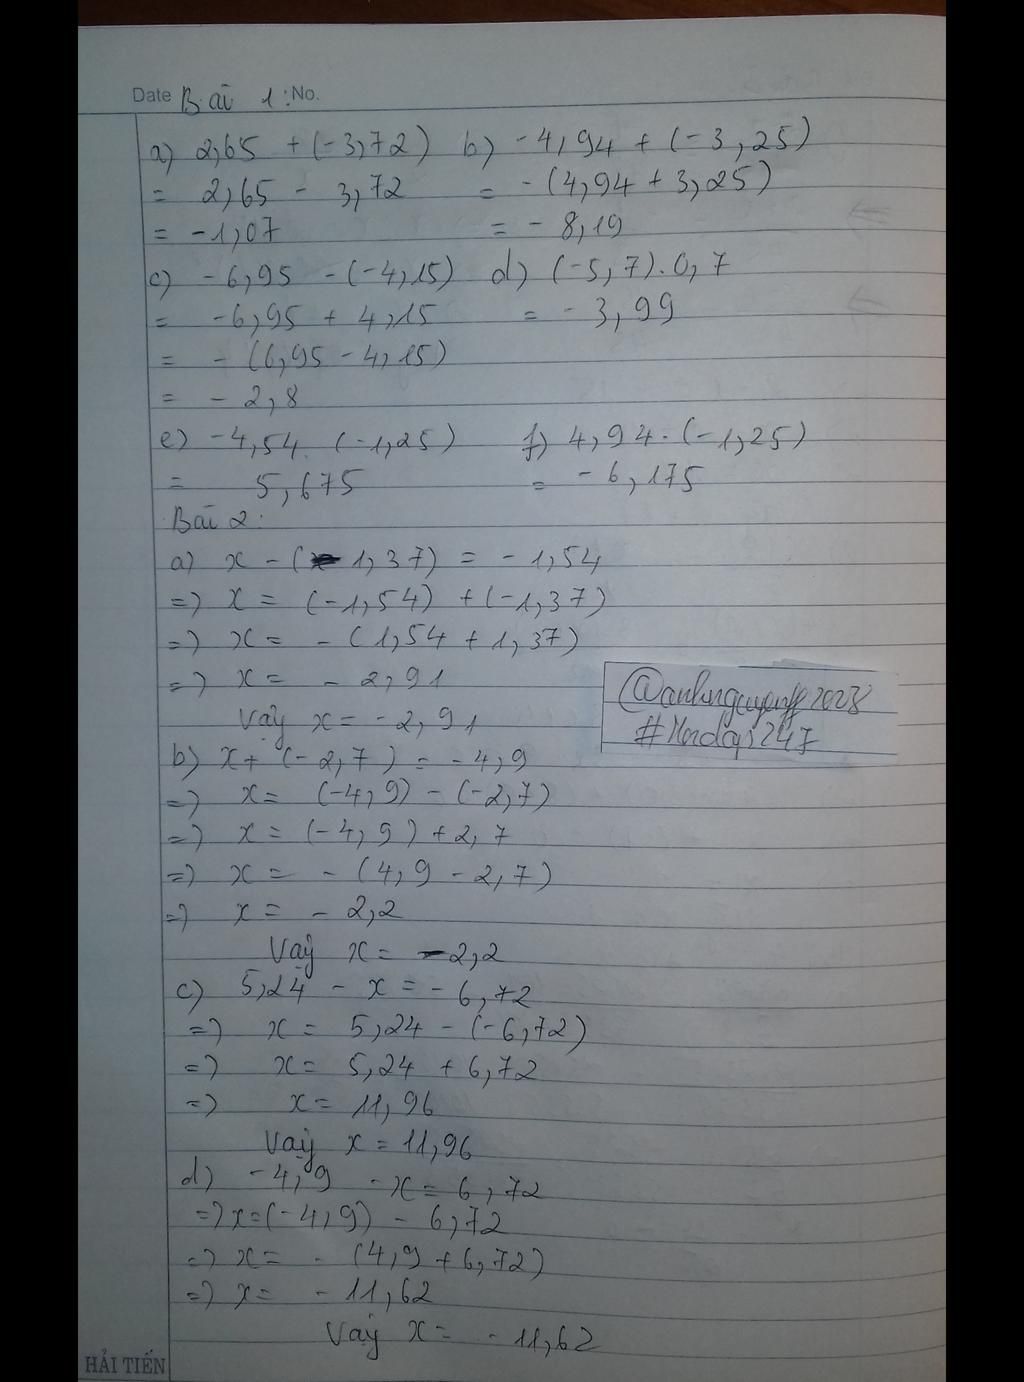 Date Bài 1: No.
a) 2,65 + (-3,72) b) -4,94 + (-3,25)
= 2,65 - 3,72 = -(4,94 + 3,25)
= -1,07 = - 8,19
c) -6,95 - (-4,15) d) (-5,7).0,7
= -6,95 + 4,15 = - 3,99
= - (6,95 - 4,15)
= - 2,8
e) -4,54. (-1,25) f) 4,94. (-1,25)
= 5,675 = - 6,175
Bài 2:
a) x - (-1,37) = - 1,54
=> x = (-1,54) + (-1,37)
=> x = - (1,54 + 1,37)
=> x = - 2,91
Vậy x = -2,91
@anhnguyenff2028
#Hordaps247
b) x + (-2,7) = -4,9
=> x = (-4,9) - (-2,7)
=> x = (-4,9) + 2,7
=> x = - (4,9 - 2,7)
=> x = - 2,2
Vậy x = -2,2
c) 5,24 - x = - 6,72
=> x = 5,24 - (-6,72)
=> x = 5,24 + 6,72
=> x = 11,96
Vậy x = 11,96
d) -4,9 - x = 6,72
=> x = (-4,9) - 6,72
=> x = - (4,9 + 6,72)
=> x = - 11,62
Vậy x = - 11,62
HẢI TIẾN